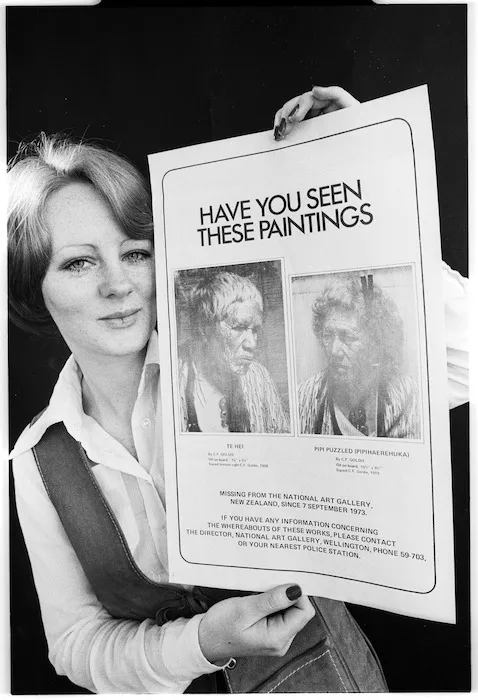 HAVE YOU SEEN
THESE PAINTINGS
TE HEI
By C.F. GOLDIE
Oil on board
Signed bottom right C.F. Goldie,
PIPI PUZZLED (PIPIHAEREHUKA)
By C.F. GOLDIE
Oil on board
Signed C.F. Goldie,
MISSING FROM THE NATIONAL ART GALLERY,
NEW ZEALAND, SINCE 7 SEPTEMBER 1973.
IF YOU HAVE ANY INFORMATION CONCERNING
THE WHEREABOUTS OF THESE WORKS, PLEASE CONTACT
THE DIRECTOR, NATIONAL ART GALLERY, WELLINGTON, PHONE 59-703,
OR YOUR NEAREST POLICE STATION.